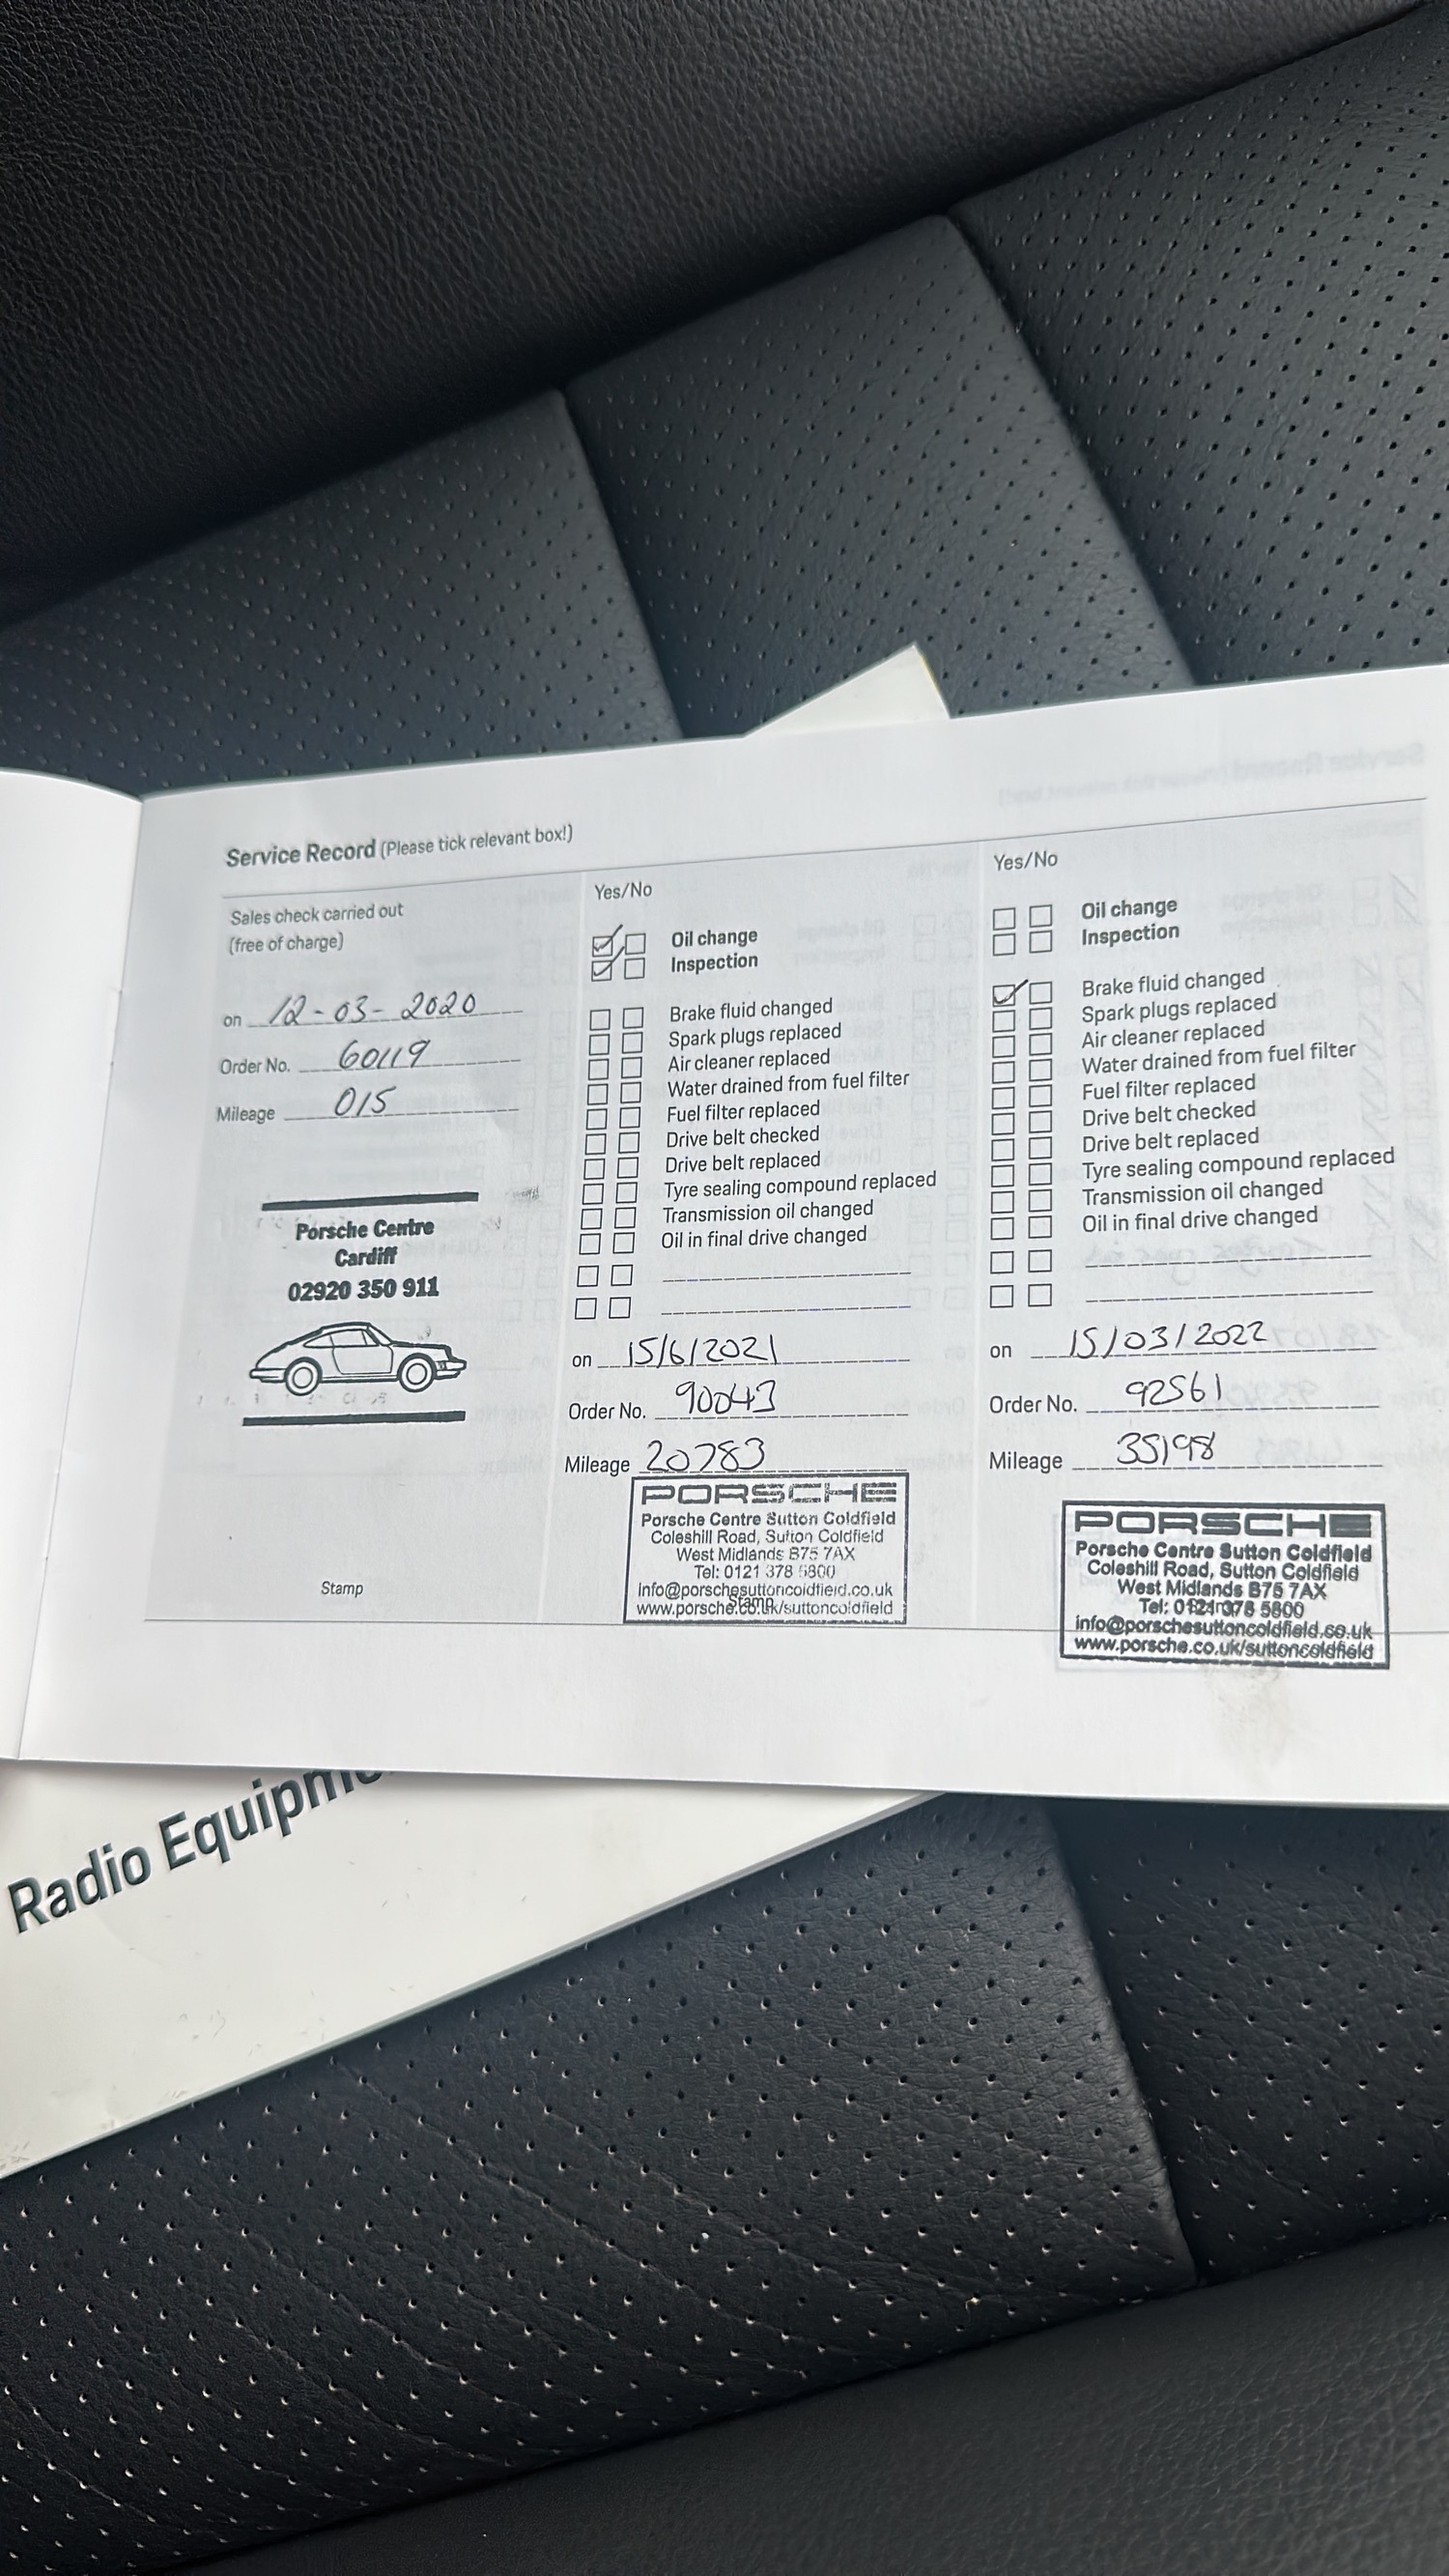 Service Record (Please tick relevant box!)
Sales check carried out
(free of charge)
on 12-03-2020
Order No. 60119
Mileage 015
Porsche Centre
Cardiff
02920 350 911
Stamp
Yes/No
Oil change
Inspection
Brake fluid changed
Spark plugs replaced
Air cleaner replaced
Water drained from fuel filter
Fuel filter replaced
Drive belt checked
Drive belt replaced
Tyre sealing compound replaced
Transmission oil changed
Oil in final drive changed
on 15/6/2021
Order No. 90043
Mileage 20783
PORSCHE
Porsche Centre Sutton Coldfield
Coleshill Road, Sutton Coldfield
West Midlands B75 7AX
Tel: 0121 378 5800
info@porschesuttoncoldfield.co.uk
www.porsche.co.uk/suttoncoldfield
Stamp
Yes/No
Oil change
Inspection
Brake fluid changed
Spark plugs replaced
Air cleaner replaced
Water drained from fuel filter
Fuel filter replaced
Drive belt checked
Drive belt replaced
Tyre sealing compound replaced
Transmission oil changed
Oil in final drive changed
on 15/03/2022
Order No. 92561
Mileage 35198
PORSCHE
Porsche Centre Sutton Coldfield
Coleshill Road, Sutton Coldfield
West Midlands B75 7AX
Tel: 0121 378 5800
info@porschesuttoncoldfield.co.uk
www.porsche.co.uk/suttoncoldfield
Radio Equipme